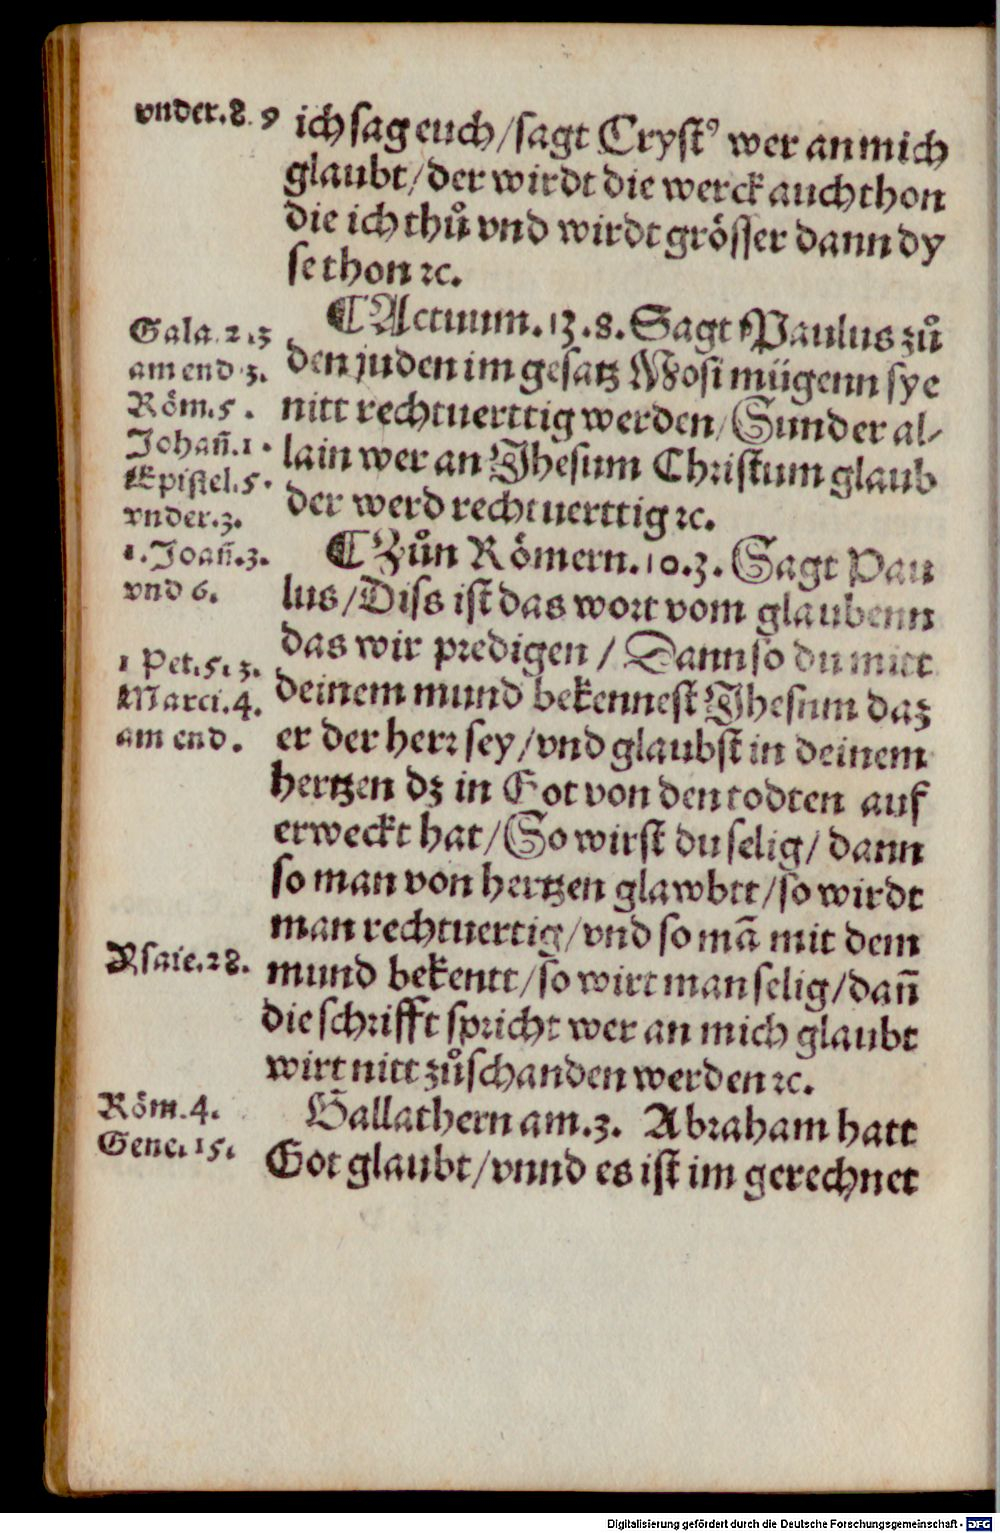 vnder.8.9
ich sag euch/sagt Cryst⁹ wer an mich
glaubt/der wirdt die werck auch thon
die ich thuͦ vnd wirdt grösser dann dy
se thon ⁊c.
⸿Actuum.13.8.Sagt Paulus zuͦ
den juden im gesatz Mosi mügenn sye
nitt rechtuerttig werden/Sunder al⸗
lain wer an Jhesum Christum glaub
der werd rechtuerttig ⁊c.
Gala.2.3
am end 3.
Röm.5.
Johañ.1.
Epistel.5.
vnder.3.
1.Joañ.3.
vnd 6.
⸿Zuͦn Römern.10.3.Sagt Pau
lus/Diss ist das wort vom glaubenn
das wir predigen/Dann so du mitt
deinem mund bekennest Jhesum daz
er der herr sey/vnd glaubst in deinem
hertzen dz in Got von den todten auf
erweckt hat/So wirst du selig/dann
so man von hertzen glawbtt/so wirdt
man rechtuertig/vnd so mã mit dem
mund bekentt/so wirt man selig/dañ
die schrifft spricht wer an mich glaubt
wirt nitt zuͦschanden werden ⁊c.
1 Pet.5.3.
Marci.4.
am end.
Ysaie.28.
Gallathern am.3. Abraham hatt
Got glaubt/vnnd es ist im gerechnet
Röm.4.
Gene.15.
Digitalisierung gefördert durch die Deutsche Forschungsgemeinschaft - DFG